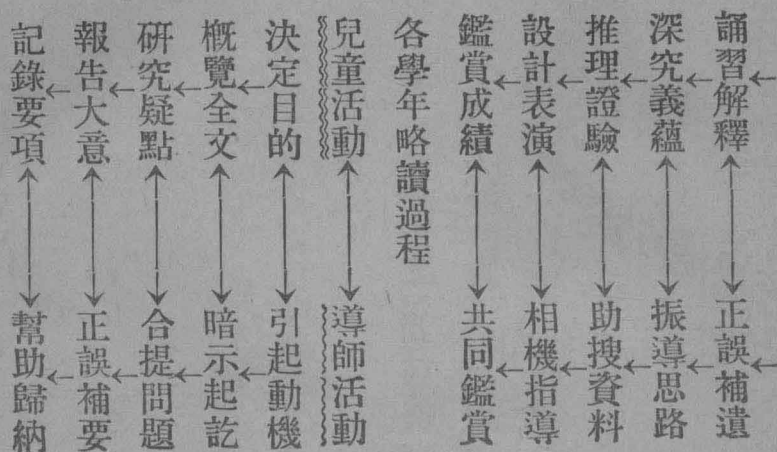 誦習解釋 正誤補遺
深究義蘊 振導思路
推理證驗 助搜資料
設計表演 相機指導
鑑賞成績 共同鑑賞
各學年略讀過程
兒童活動 導師活動
決定目的 引起動機
概覽全文 暗示起訖
研究疑點 合提問題
報告大意 正誤補要
記錄要項 幫助歸納